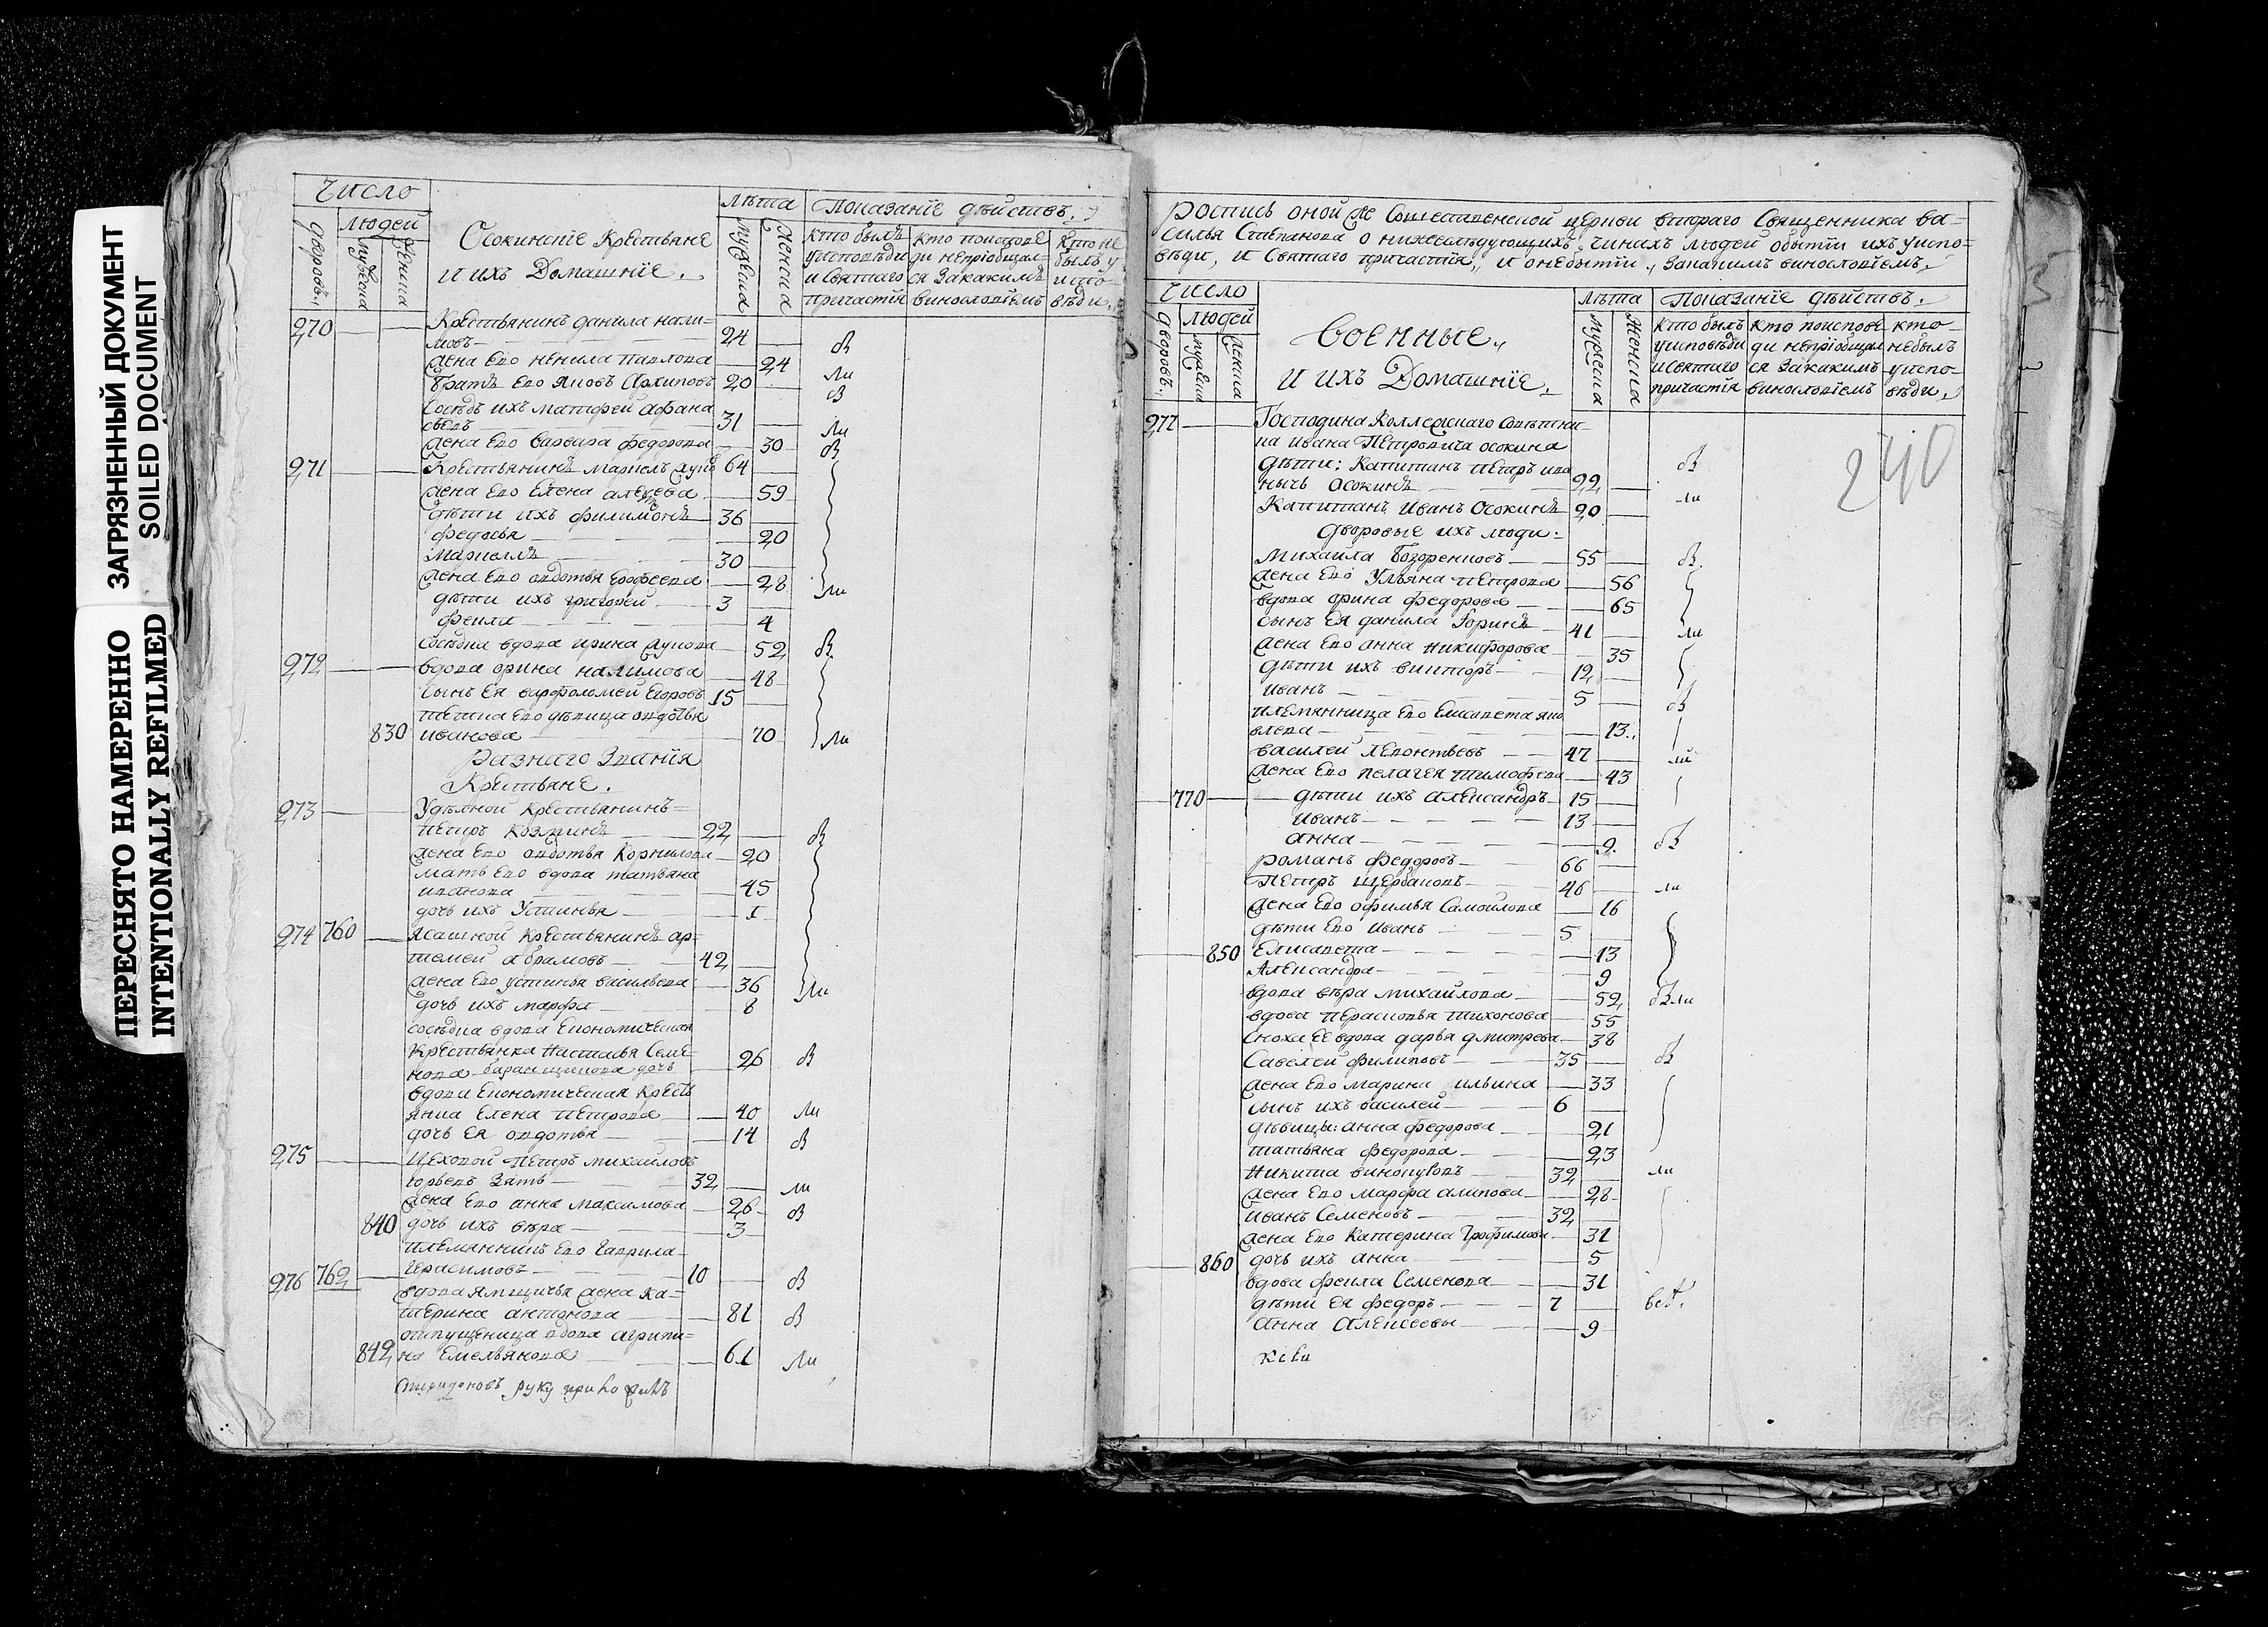 ЗАГРЯЗНЕННЫЙ ДОКУМЕНТ
SOILED DOCUMENT
ПЕРЕСНЯТО НАМЕРЕННО
INTENTIONALLY REFILMED
Число
лѣта
Показанїе дѣйствъ.
дворовъ
людей
мужеска
женска
Осокинскїе Крестьяне
и ихъ Домашнїе.
мужеска
женска
кто былъ
у исповѣди
и святаго
причастїя
кто поиспове
ди непрїобщал
ся закакимъ
винословїемъ
кто не
былъ у
испо-
вѣди
270 Крестьянинъ данила нали-
мовъ 24
жена ево ненила павлова 24
братъ ево яковъ Архиповъ 20
Сосѣдъ ихъ матфей афана
сьевъ 31
жена ево варвара федорова 30
271 Крестьянинъ 64
жена ево Елена 59
дѣти ихъ филимонъ 36
федосья 20
30
жена ево авдотья ерофеева 28
дѣти ихъ григорей 3
фекла 4
сосѣдка вдова ирина 52
272 вдова орина налимова 48
сынъ ея варфоломей Егоровъ 15
тетка ево дѣвица авдотья
830 иванова 70
Разнаго Званїя
Крестьяне.
273 Удѣлной крестьянинъ
петръ козминъ 22
жена ево авдотья Корнилова 20
мать ево вдова татьяна
иванова 45
дочь ихъ Устинья 1
274 760 Ясашной крестьянинъ ар-
темей абрамовъ 42
жена ево устинья васильева 36
дочь ихъ марфа 8
сосѣдка вдова Економическая
крестьянка настасья Семе-
нова баранщикова дочь 26
вдова Економическая крестъ
янка елена петрова 40
дочь ея авдотья 14
275 Цеховой петръ михайловъ
зять 32
жена ево анна максимова 26
840 дочь ихъ вѣра 3
племянникъ ево гаврила
герасимовъ 10
276 762 вдова ямщичья жена ка-
терина антонова 81
отпущеница вдова агрипи-
842 на Емельянова 61
руку приложилъ
Роспись оной же Сошественской церкви втораго Священника ва-
силья Степанова о нижеслѣдующихъ чинахъ людей обытїи ихъ уиспо-
вѣди, и Святаго причастїя, и онебытїи, запакимъ винословїемъ
Число
лѣта
Показанїе дѣйствъ.
дворовъ
людей
мужеска
женска
Военные,
и ихъ Домашнїе.
мужеска
женска
кто былъ
уисповѣди
исвятаго
причастїя
кто поиспове
ди непрїобщал
ся закакимъ
винословїемъ
кто
небылъ
уиспо-
вѣди
240
277 Господина Коллежскаго совѣтни
ка ивана Петровича осокина
дѣти: Капитанъ петръ ива
нычь осокинъ 22
Капитанъ Иванъ Осокинъ 20
дворовые ихъ люди:
Михайла 55
жена ево Ульяна петрова 56
вдова орина федорова 65
сынъ ея данила 41
жена ево анна никифорова 35
дѣти ихъ викторъ 12
иванъ 5
племянница ево Елисавета яко
влева 13
василей леонтьевъ 47
жена ево пелагея тимофева 43
770 дѣти ихъ александръ 15
иванъ 13
анна 9
романъ федоровъ 66
петръ щербаковъ 46
жена ево офимья Самойлова 16
дѣти ево иванъ 5
850 Елисавета 13
Александра 9
вдова вѣра михайлова 52
вдова перасковья тихонова 55
сноха ее вдова дарья дмитрева 38
Савелей филиповъ 35
жена ево марина ильина 33
сынъ ихъ василей 6
дѣвицы: анна федорова 21
татьяна федорова 23
никита винокуровъ 32
жена ево марфа 28
иванъ Семеновъ 32
жена ево катерина трофимова 31
860 дочь ихъ анна 5
вдова фекла Семенова 31
дѣти ея федоръ 7
анна алексеевы 9